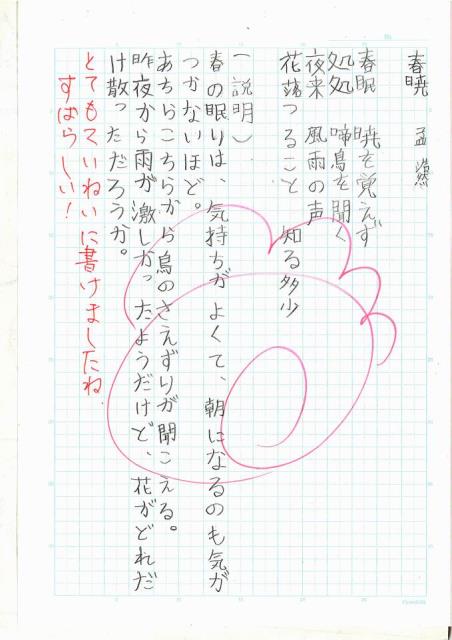 春暁　孟浩然
春眠　暁を覚えず
処処　啼鳥を聞く
夜来　風雨の声
花落つること　知る多少
（説明）
春の眠りは、気持ちがよくて、朝になるのも気が
つかないほど。
あちらこちらから鳥のさえずりが聞こえる。
昨夜から雨が激しかったようだけど、花がどれだ
け散っただろうか。
とてもていねいに書けましたね。
すばらしい！